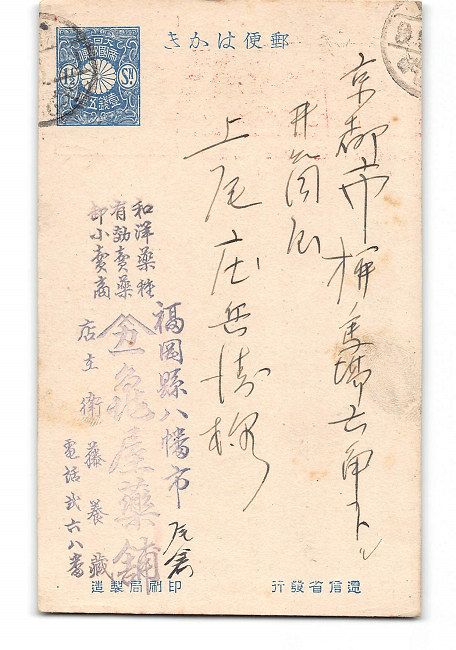 郵便はかき
大日本
帝國郵便
1½ Sn.
壹錢五厘
京都市柳馬場六角下ル
井筒屋
上尾庄兵衛様
和洋藥種
有効賣藥
卸小賣商
福岡縣八幡市尾倉
屋藥舗
店主 衛藤養藏
電話貳六八番
逓信省發行
印刷局製造